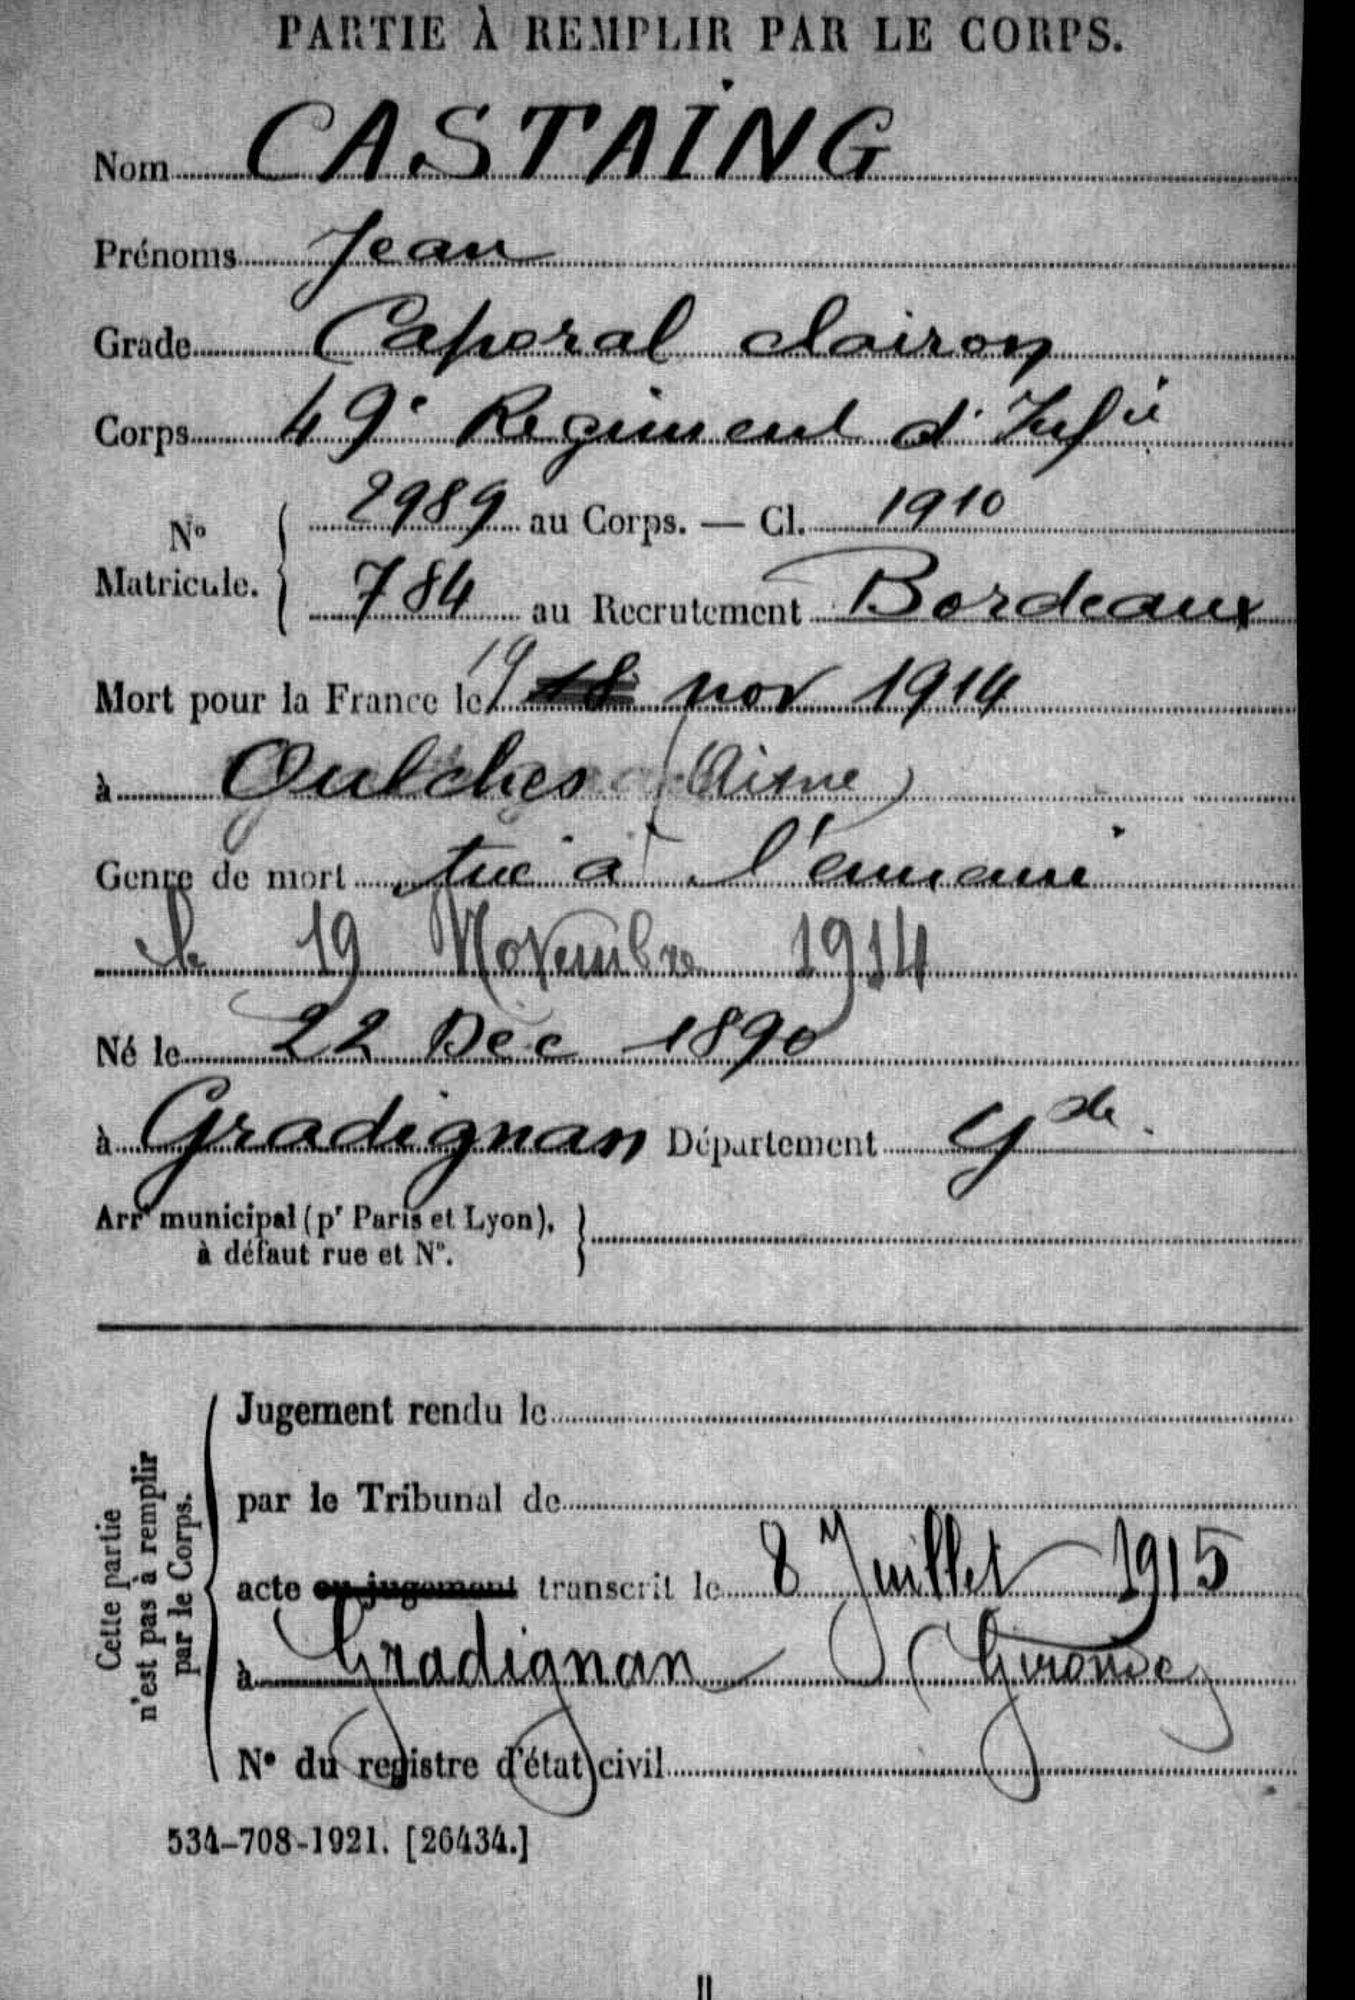 PARTIE À REMPLIR PAR LE CORPS.
Nom CASTAING
Prénoms Jean
Grade Caporal clairon
Corps 49e Regiment d'Infie
No Matricule. 2989 au Corps. — Cl. 1910
784 au Recrutement Bordeaux
Mort pour la France le 19 18 nov 1914
à Oulches (Aisne)
Genre de mort tué à l'ennemi
le 19 Novembre 1914
Né le 22 Dec 1890
à Gradignan Département Gde.
Arrt municipal (pr Paris et Lyon),
à défaut rue et No.
Cette partie
n'est pas à remplir
par le Corps.
Jugement rendu le
par le Tribunal de
acte ou jugement transcrit le 8 Juillet 1915
à Gradignan (Gironde)
No du registre d'état civil
534-708-1921. [26434.]